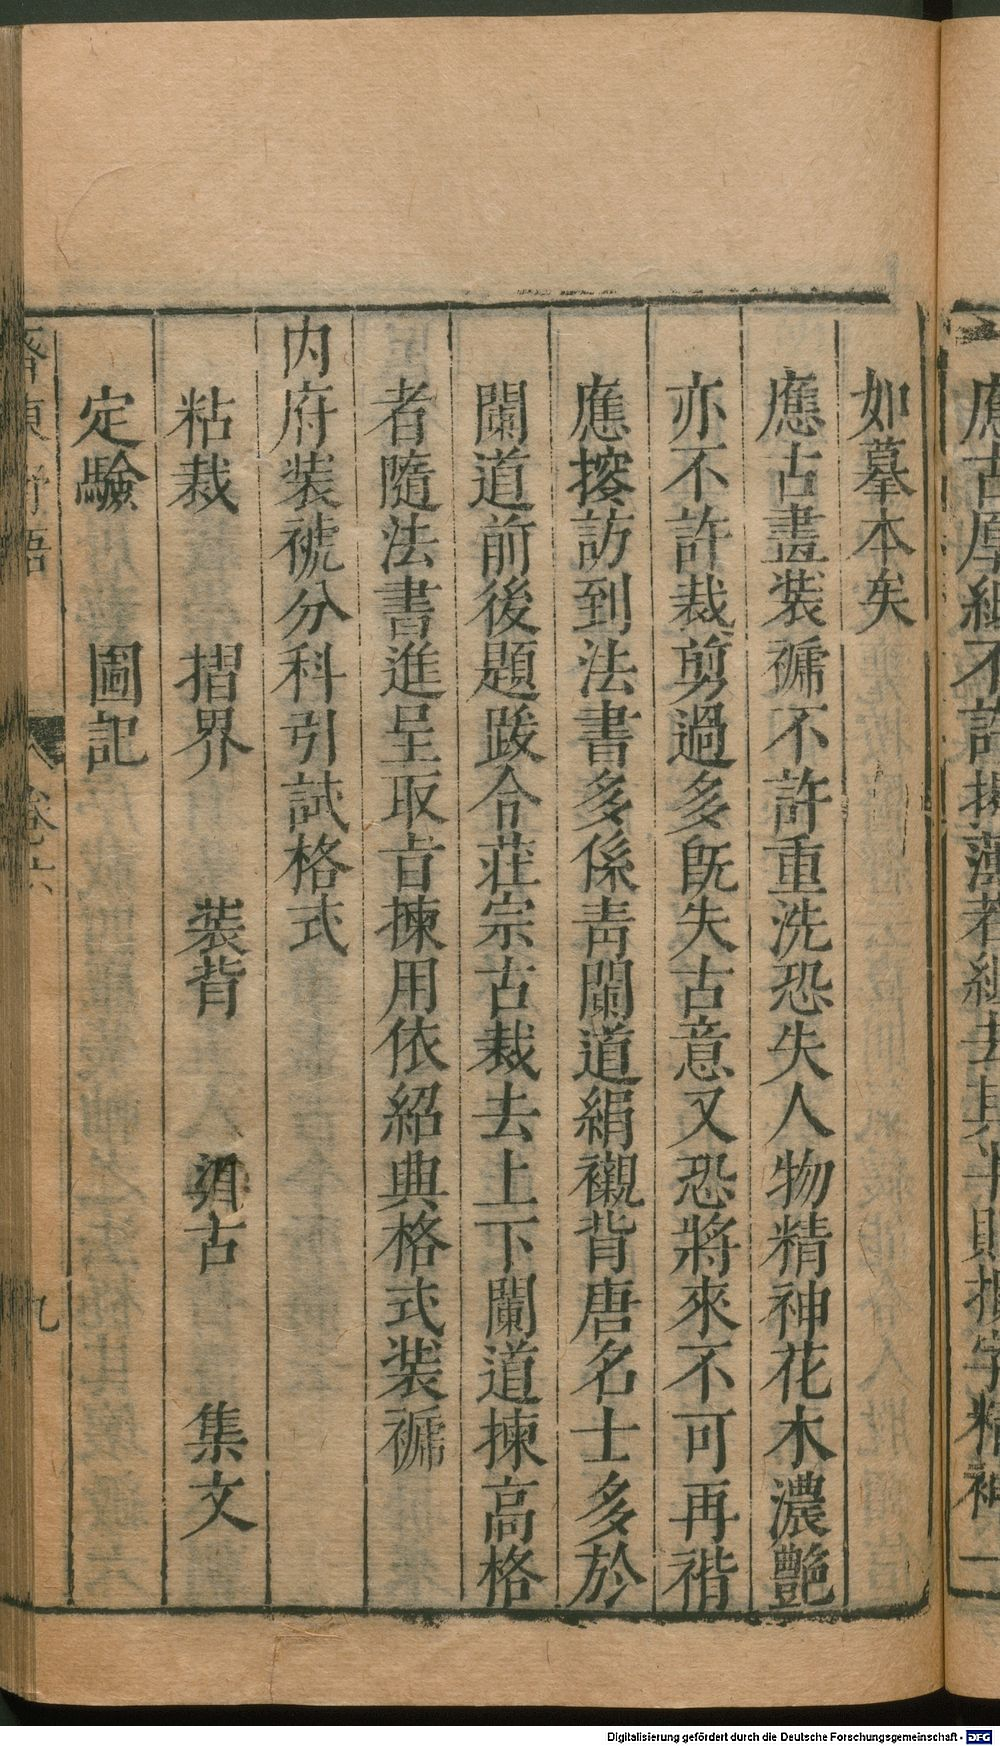 應古厚紙不許揭薄若紙去其半則損字精神一
如摹本矣
應古畫裝褫不許重洗恐失人物精神花木濃艷
亦不許裁剪過多既失古意又恐將來不可再褙
應搜訪到法書多係青闌道絹襯背唐名士多於
闌道前後題跋令莊宗古裁去上下闌道揀高格
者隨法書進呈取旨揀用依紹典格式裝褫
内府装褫分科引試格式
粘裁　摺界　裝背　古　集文
定驗　圖記
齊東野語　卷六　九
Digitalisierung gefördert durch die Deutsche Forschungsgemeinschaft - DFG